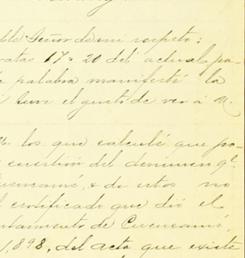 ble Señor de mi respeto:
ratas 17 y 20 del actual, pa-
palabra manifesté la
tuve el gusto de ver á U.
los que calculé que po-
cuestion del
Cuencamé, y de estos no
certificado que dió el
ntamiento de Cuencamé,
1,898, del acta que existe